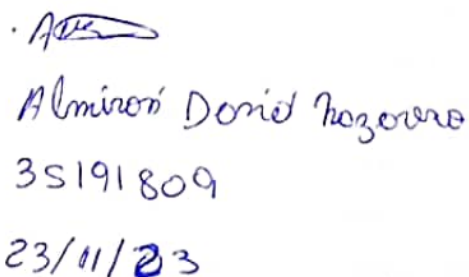 Almiron David Nazareno
35191809
23/11/23